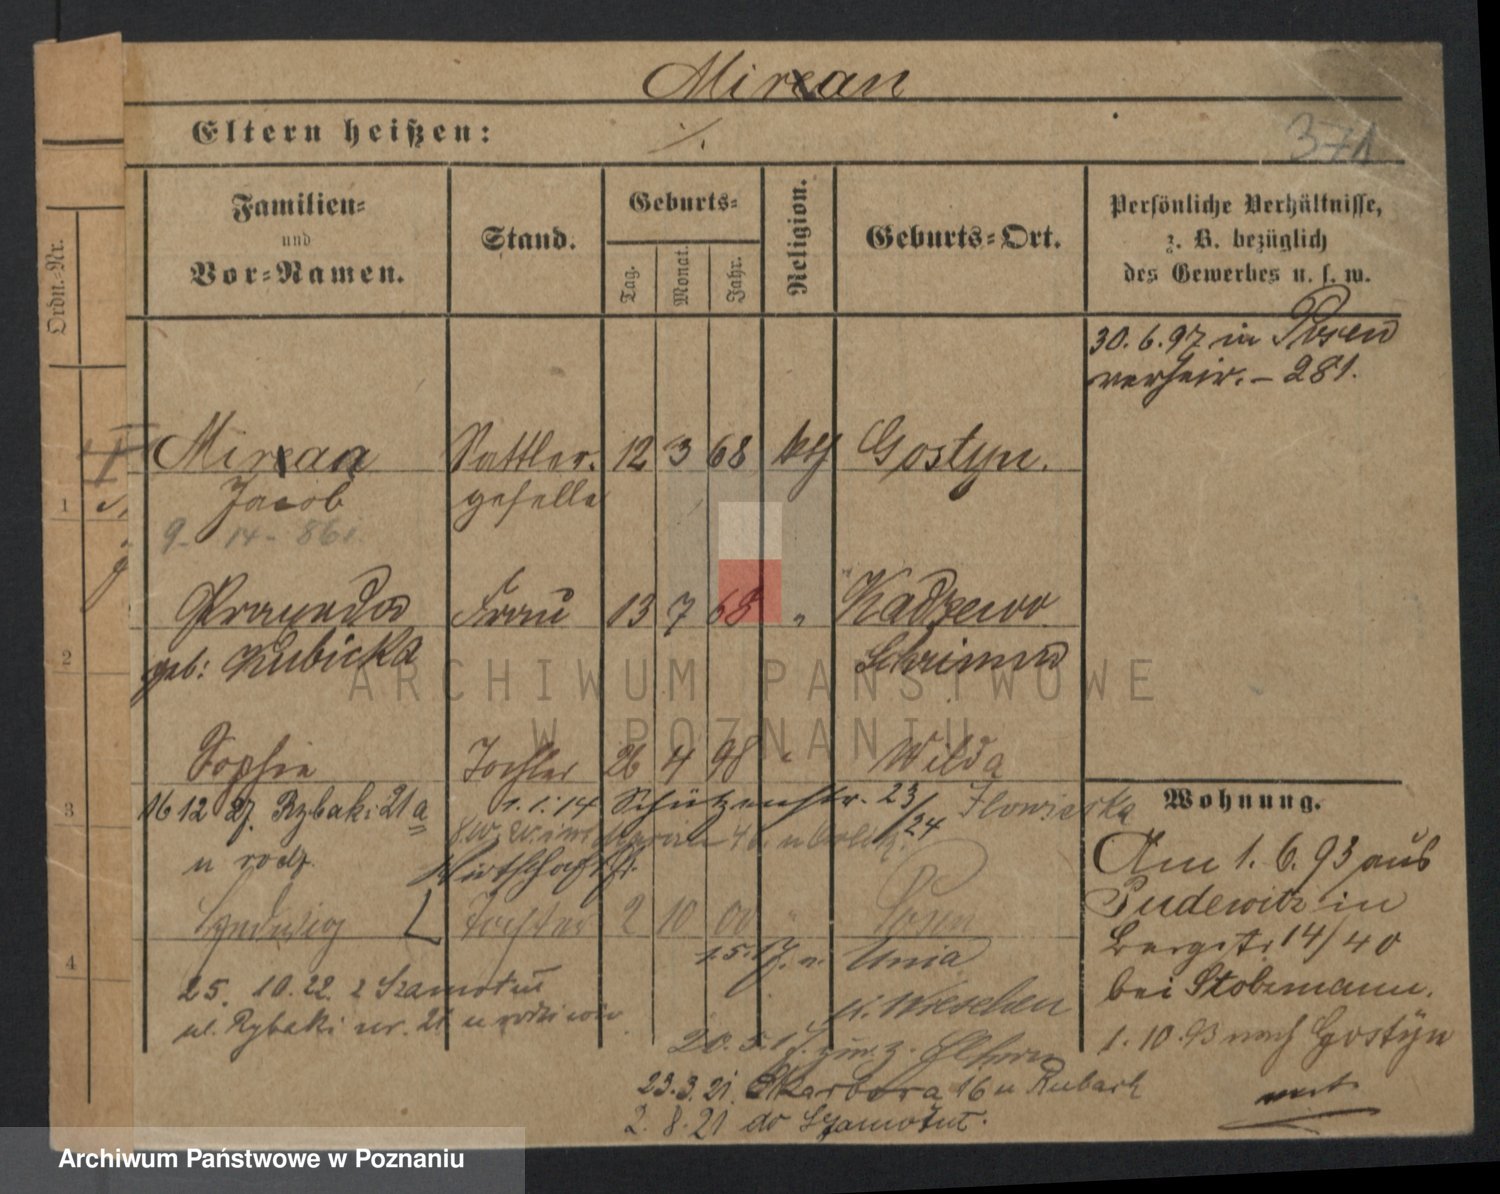 Mirean
Eltern heißen: ./.
371
Ordn.-Nr.
Familien-
und
Vor-Namen.
Stand.
Geburts-
Tag.
Monat.
Jahr.
Religion.
Geburts-Ort.
Persönliche Verhältnisse,
z. B. bezüglich
des Gewerbes u. s. w.
30. 6. 97 in Posen
verheir. - 281.
1
Sattler- 12 3 68 kth Gostyn.
Jacob geselle
9- 14- 86
2
Praxeda Frau 13 7 68 " Kadzewo
geb: Kubicka Schrimm
3
Sophie Tochter 26 4 98 " Wilda
16 12 27. Rybaki 21a 1. 1. 14 Schützenstr. 23/24
u rodz.
4
Tochter 2 10 00 " Posen
15. 17. n. Unia
25. 10. 22. z Szamotuł
ul. Rybaki nr. 21 u rodziców
n. Wreschen
20. 5. 17. z. Eltern
23. 3. 21. Skarbowa 16 u Kubach
2. 8. 21 do Szamotuł.
Wohnung.
Am 1. 6. 93 aus
Pudewitz in
Bergstr 14/40
bei Stobzmann.
1. 10. 93 nach Gostyn
ARCHIWUM PAŃSTWOWE
W POZNANIU
Archiwum Państwowe w Poznaniu